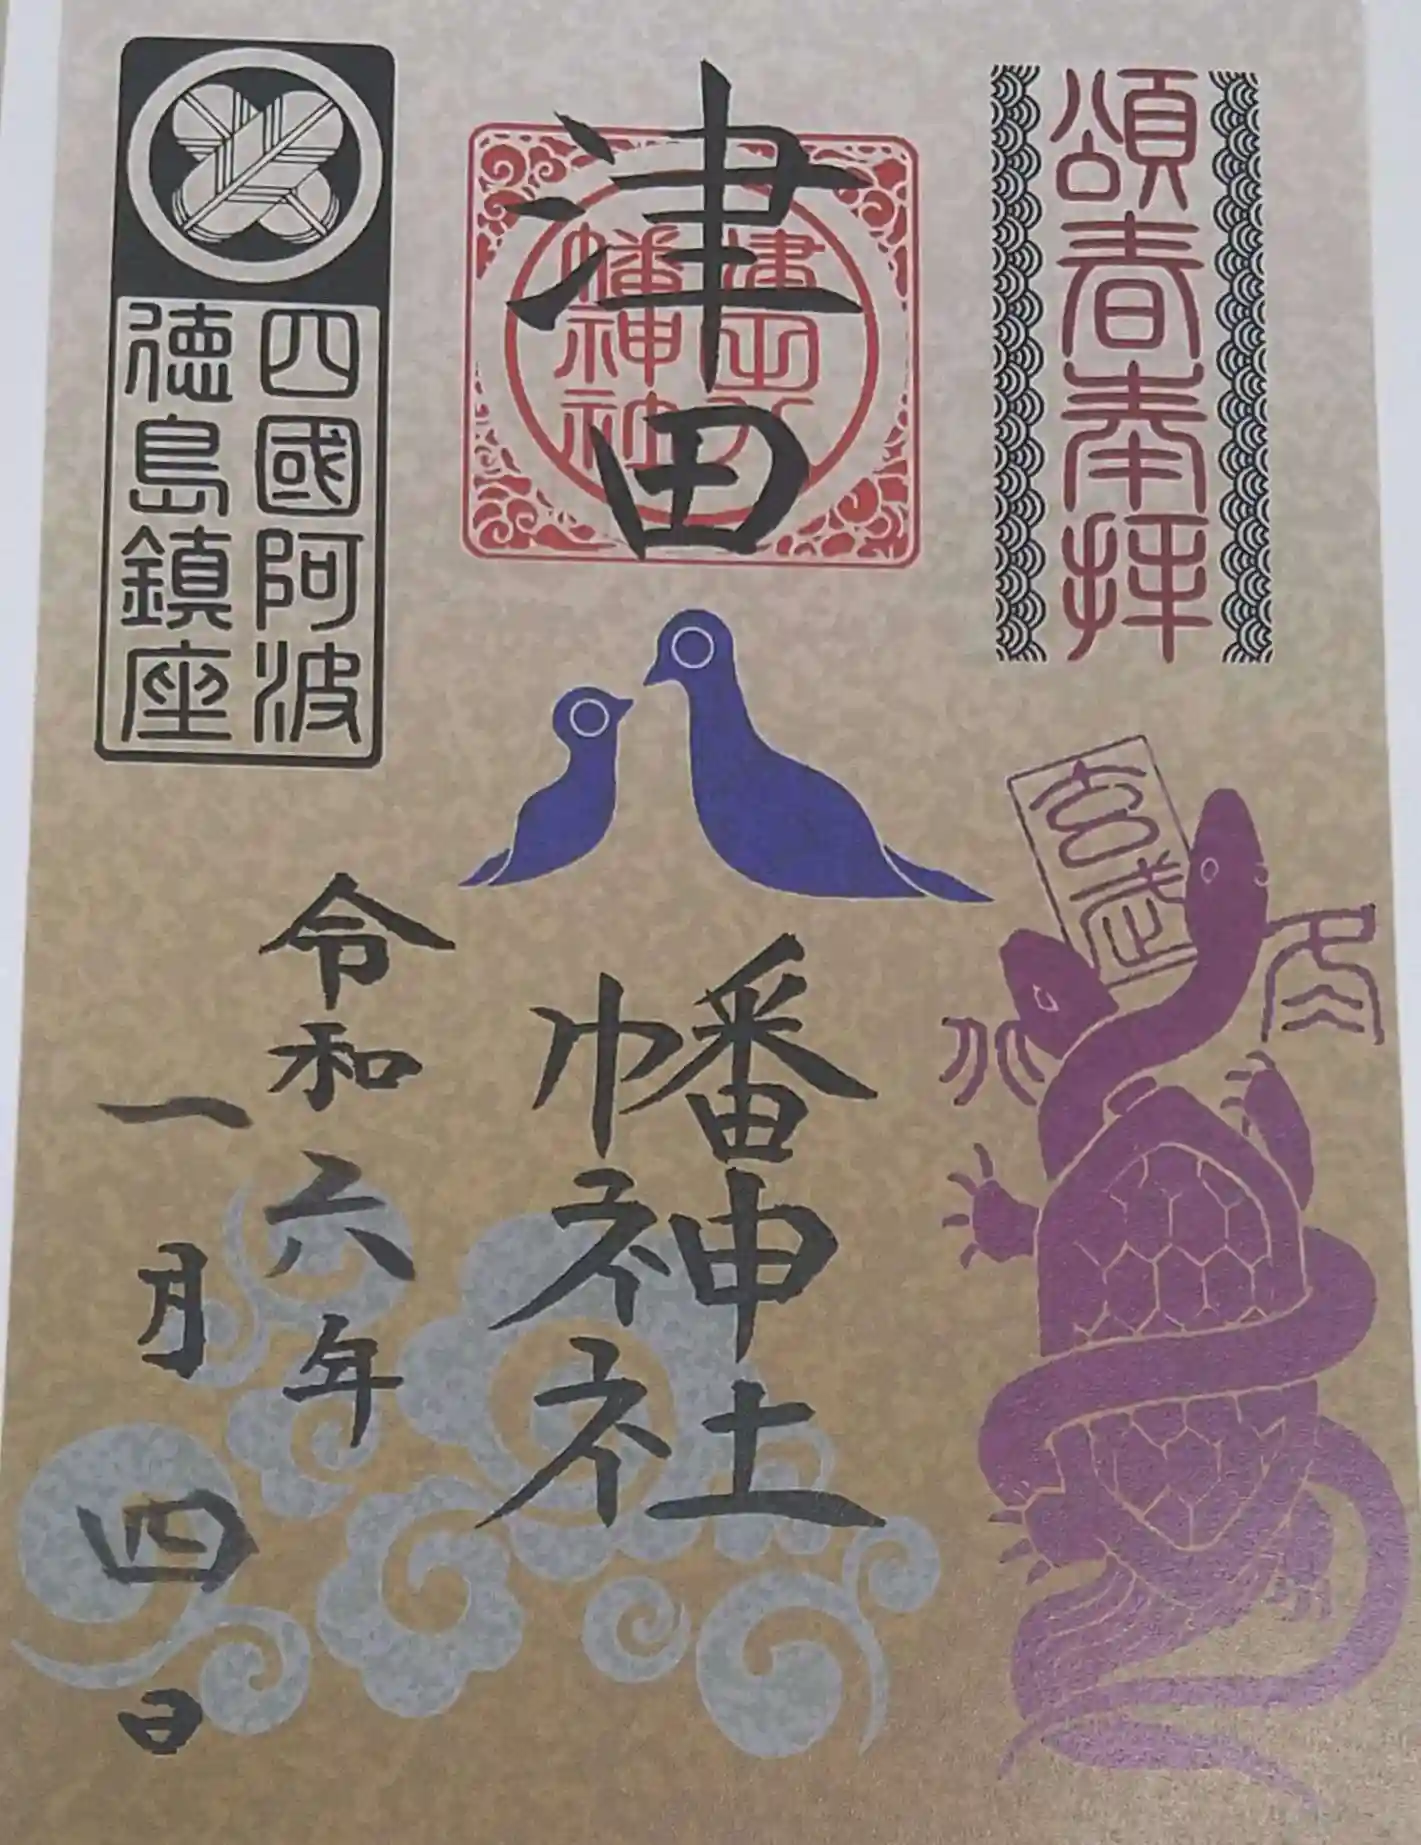 頌春奉拝
玄武
水
冬
津田
津田八
幡神社
幡神社
四國阿波
徳島鎮座
令和六年
一月四日